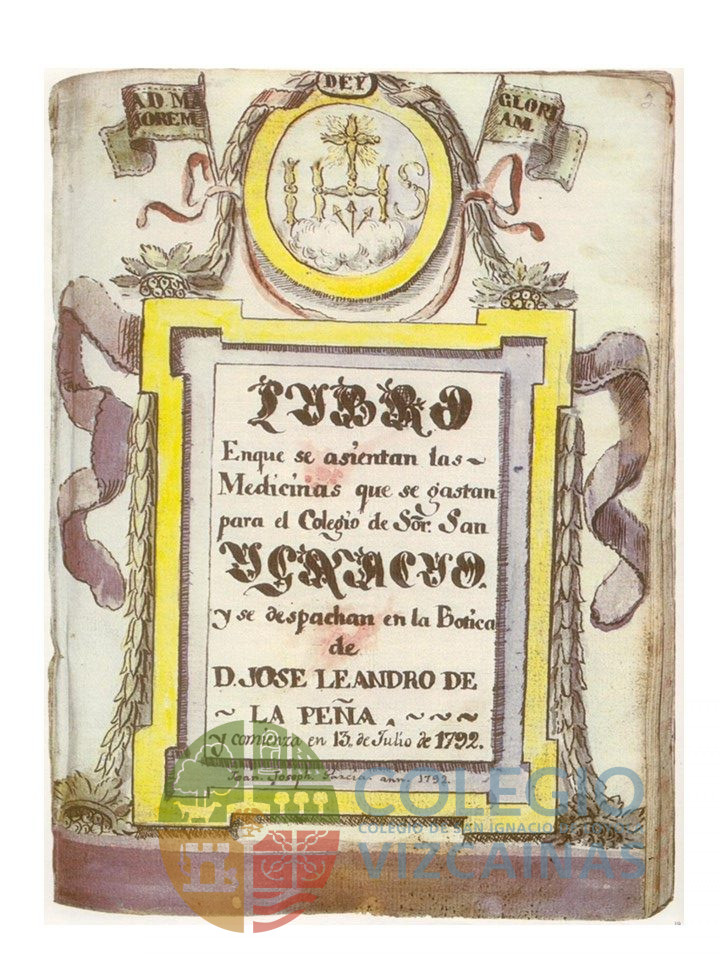 DEY
AD MA
JOREM
GLORI
AM.
IHS
LYBRO
Enque se asientan las~
Medicinas que se gastan
para el Colegio de Sõr. San
YGNACYO.
y se despachan en la Botica
de
D. JOSE LEANDRO DE
~ LA PEÑA . ~ ~ ~
y comienza en 13. de Julio de 1792.
Joan. Joseph. Garcia. ann. 1792.
COLEGIO
COLEGIO DE SAN IGNACIO DE
VIZCAINAS